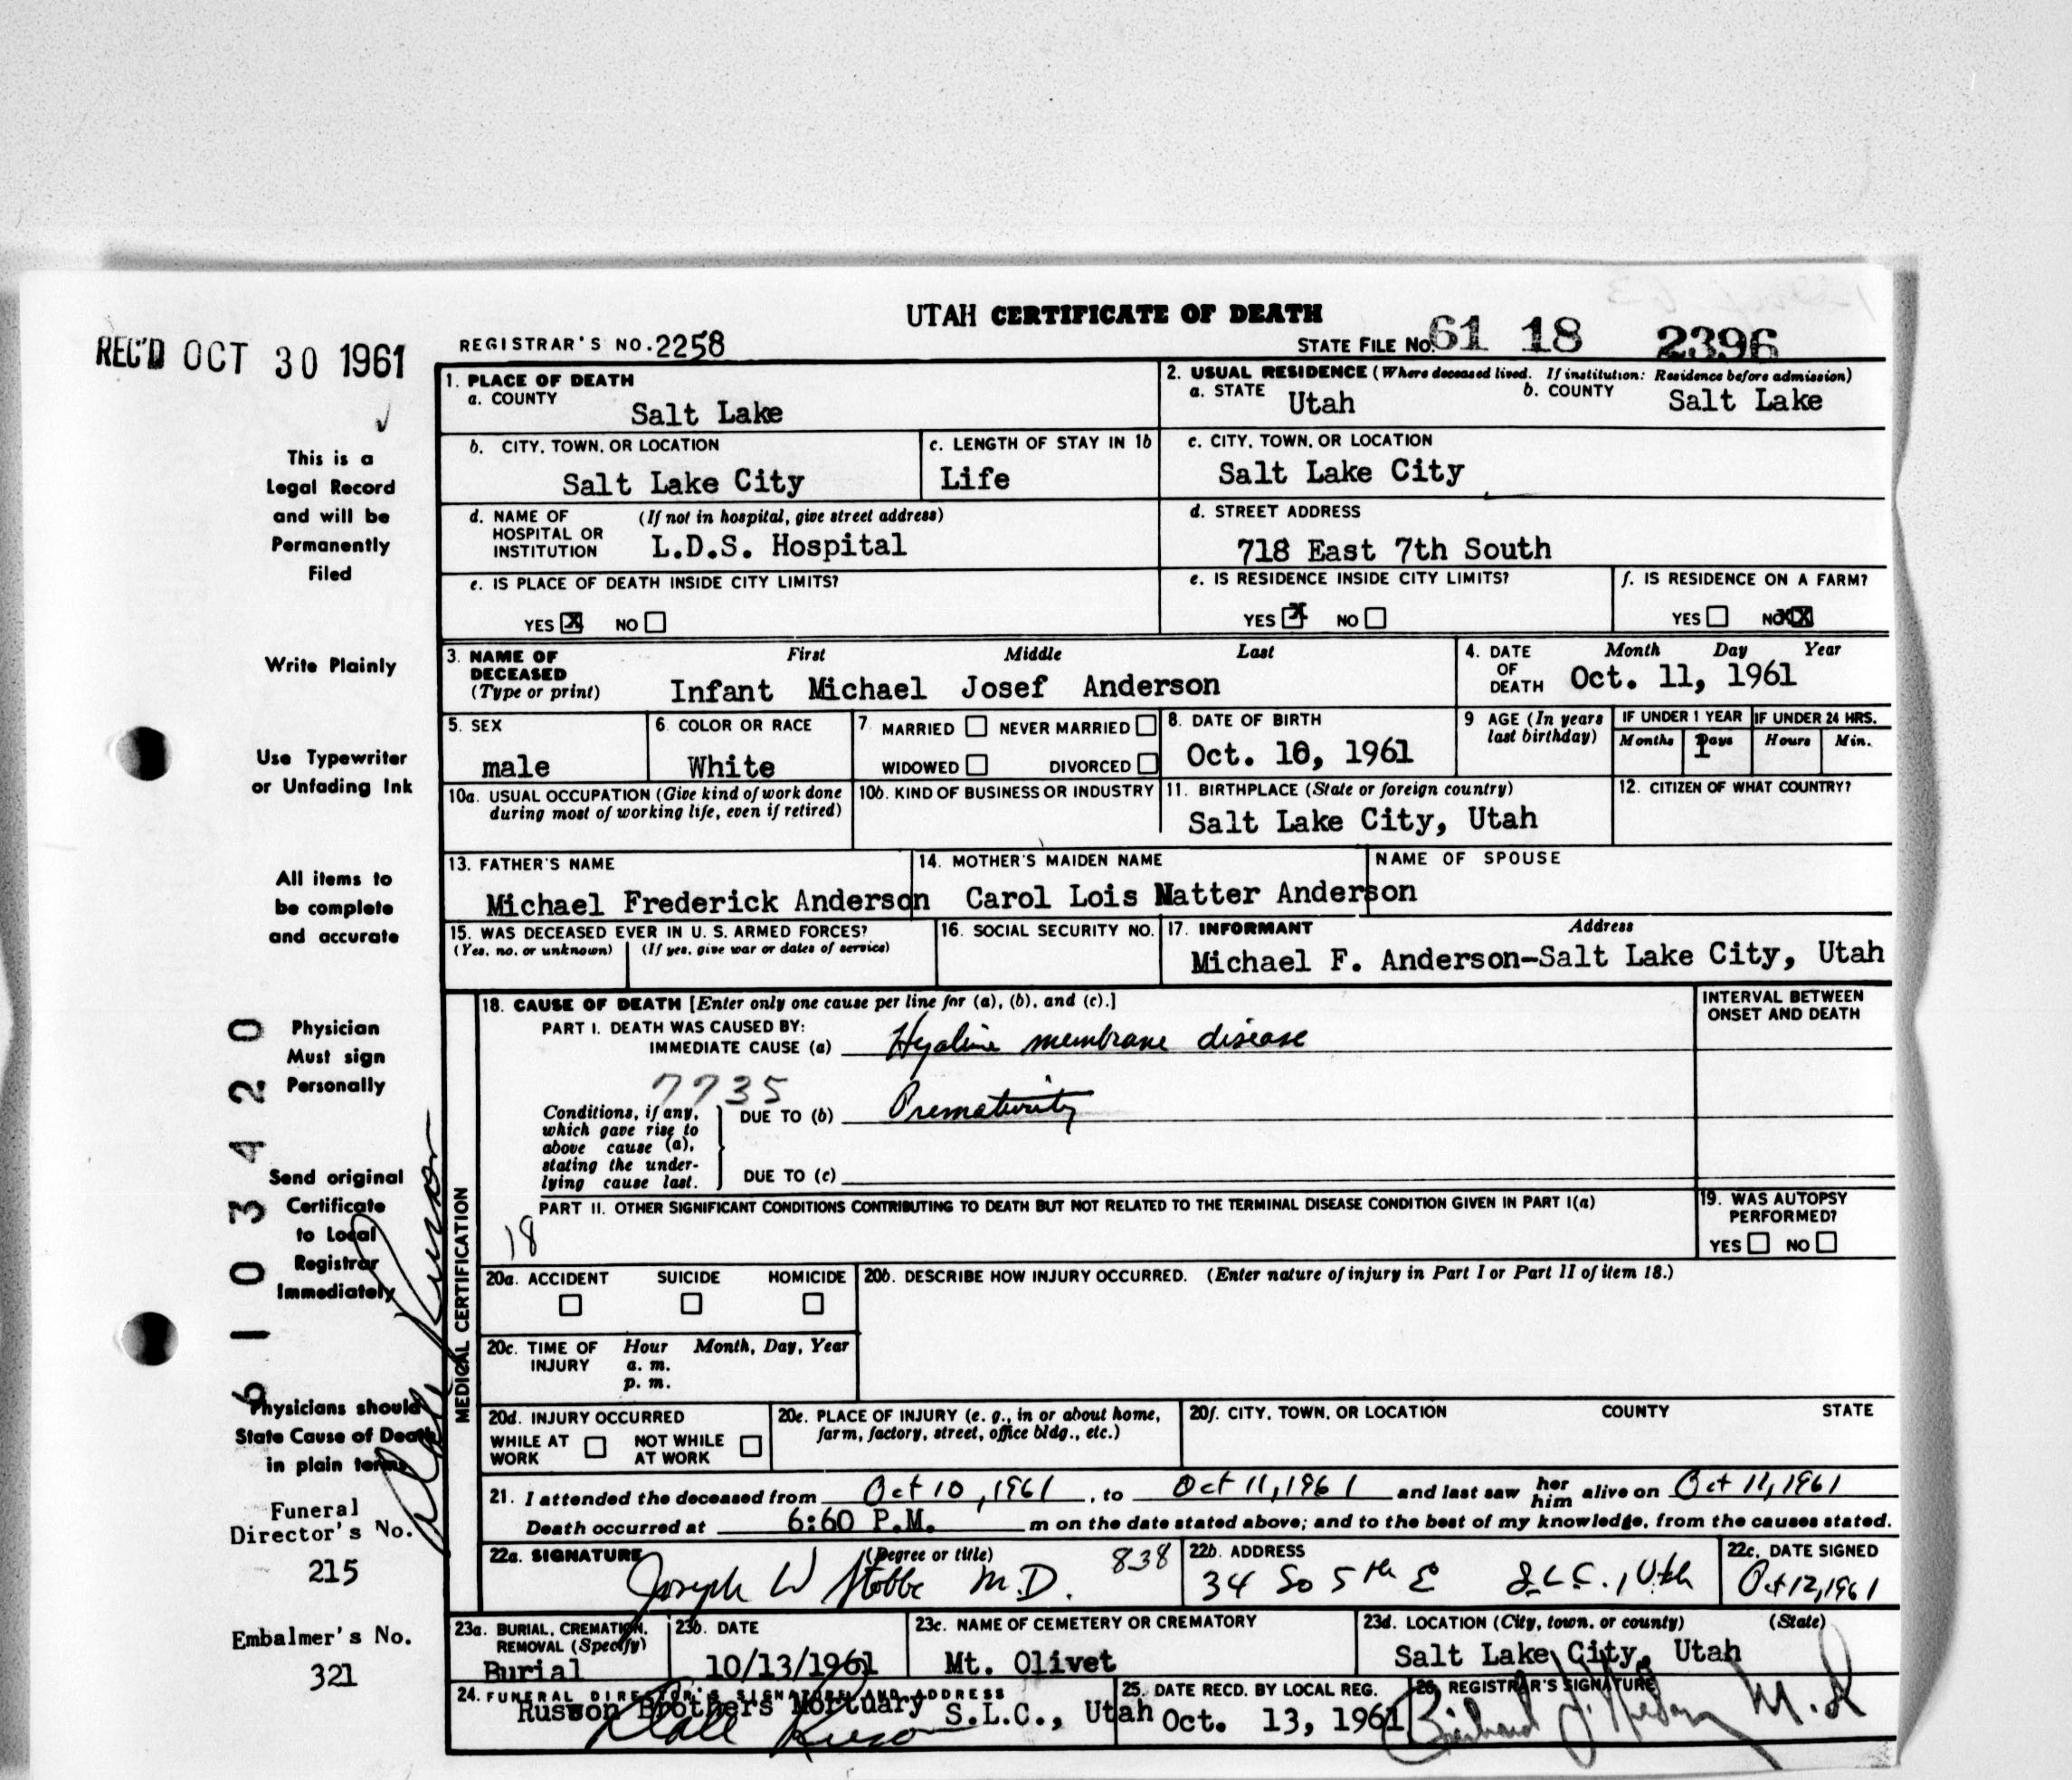 UTAH CERTIFICATE OF DEATH
REC'D OCT 30 1961
REGISTRAR'S NO. 2258
STATE FILE NO. 61 18 2396
1. PLACE OF DEATH
a. COUNTY
Salt Lake
2. USUAL RESIDENCE (Where deceased lived. If institution: Residence before admission)
a. STATE Utah b. COUNTY Salt Lake
b. CITY, TOWN, OR LOCATION
Salt Lake City
c. LENGTH OF STAY IN 1b
Life
c. CITY, TOWN, OR LOCATION
Salt Lake City
d. NAME OF HOSPITAL OR INSTITUTION (If not in hospital, give street address)
L.D.S. Hospital
d. STREET ADDRESS
718 East 7th South
e. IS PLACE OF DEATH INSIDE CITY LIMITS?
YES X NO
e. IS RESIDENCE INSIDE CITY LIMITS?
YES X NO
f. IS RESIDENCE ON A FARM?
YES NO X
3. NAME OF DECEASED (Type or print)
First Middle Last
Infant Michael Josef Anderson
4. DATE OF DEATH
Month Day Year
Oct. 11, 1961
5. SEX
male
6. COLOR OR RACE
White
7. MARRIED NEVER MARRIED
WIDOWED DIVORCED
8. DATE OF BIRTH
Oct. 10, 1961
9 AGE (In years last birthday)
IF UNDER 1 YEAR
Months Days
1
IF UNDER 24 HRS.
Hours Min.
10a. USUAL OCCUPATION (Give kind of work done during most of working life, even if retired)
10b. KIND OF BUSINESS OR INDUSTRY
11. BIRTHPLACE (State or foreign country)
Salt Lake City, Utah
12. CITIZEN OF WHAT COUNTRY?
13. FATHER'S NAME
Michael Frederick Anderson
14. MOTHER'S MAIDEN NAME
Carol Lois Natter Anderson
NAME OF SPOUSE
15. WAS DECEASED EVER IN U. S. ARMED FORCES?
(Yes, no, or unknown) (If yes, give war or dates of service)
16. SOCIAL SECURITY NO.
17. INFORMANT Address
Michael F. Anderson-Salt Lake City, Utah
18. CAUSE OF DEATH [Enter only one cause per line for (a), (b), and (c).]
PART I. DEATH WAS CAUSED BY:
IMMEDIATE CAUSE (a) Hyaline membrane disease
INTERVAL BETWEEN ONSET AND DEATH
7735
Conditions, if any, which gave rise to above cause (a), stating the underlying cause last.
DUE TO (b) Prematurity
DUE TO (c)
PART II. OTHER SIGNIFICANT CONDITIONS CONTRIBUTING TO DEATH BUT NOT RELATED TO THE TERMINAL DISEASE CONDITION GIVEN IN PART I(a)
18
19. WAS AUTOPSY PERFORMED?
YES NO
20a. ACCIDENT SUICIDE HOMICIDE
20b. DESCRIBE HOW INJURY OCCURRED. (Enter nature of injury in Part I or Part II of item 18.)
20c. TIME OF INJURY Hour Month, Day, Year
a. m.
p. m.
20d. INJURY OCCURRED
WHILE AT WORK NOT WHILE AT WORK
20e. PLACE OF INJURY (e. g., in or about home, farm, factory, street, office bldg., etc.)
20f. CITY, TOWN, OR LOCATION COUNTY STATE
21. I attended the deceased from Oct 10, 1961, to Oct 11, 1961 and last saw her him alive on Oct 11, 1961
Death occurred at 6:60 P.M. m on the date stated above; and to the best of my knowledge, from the causes stated.
22a. SIGNATURE (Degree or title)
Joseph W Stobbe M.D. 838
22b. ADDRESS
34 So 5th E S.L.C., Utah
22c. DATE SIGNED
Oct 12, 1961
23a. BURIAL, CREMATION, REMOVAL (Specify)
Burial
23b. DATE
10/13/1961
23c. NAME OF CEMETERY OR CREMATORY
Mt. Olivet
23d. LOCATION (City, town, or county) (State)
Salt Lake City, Utah
24. FUNERAL DIRECTOR'S SIGNATURE AND ADDRESS
Russon Brothers Mortuary S.L.C., Utah
25. DATE RECD. BY LOCAL REG.
Oct. 13, 1961
26. REGISTRAR'S SIGNATURE
M.D.
MEDICAL CERTIFICATION
This is a
Legal Record
and will be
Permanently
Filed
Write Plainly
Use Typewriter
or Unfading Ink
All items to
be complete
and accurate
Physician
Must sign
Personally
Send original
Certificate
to Local
Registrar
Immediately
Physicians should
State Cause of Death
in plain terms
Funeral
Director's No.
215
Embalmer's No.
321
6 1 0 3 4 2 0